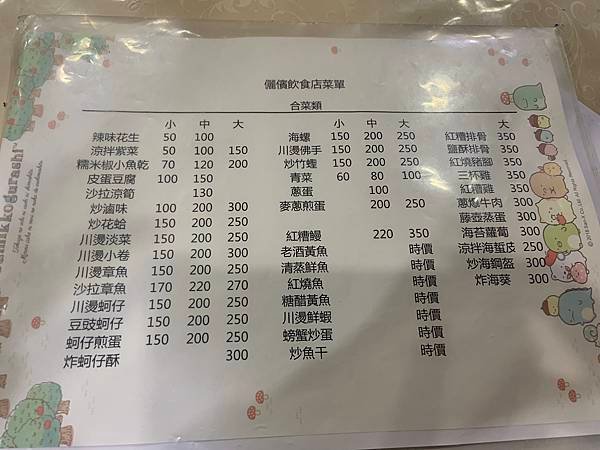 儷儐飲食店菜單
合菜類
小 中 大
辣味花生 50 100
涼拌紫菜 50 100 150
糯米椒小魚乾 70 120 200
皮蛋豆腐 100 150
沙拉涼筍 130
炒滷味 100 200 300
炒花蛤 150 200 250
川燙淡菜 150 200 250
川燙小卷 150 200 300
川燙章魚 150 200 250
沙拉章魚 170 220 270
川燙蚵仔 150 200 250
豆豉蚵仔 150 200 250
蚵仔煎蛋 150 200 250
炸蚵仔酥 300
小 中 大
海螺 150 200 250
川燙佛手 150 200 250
炒竹蟶 150 200 250
青菜 60 80 100
蔥蛋 100
麥蔥煎蛋 200 250
紅糟鰻 220 350
老酒黃魚 時價
清蒸鮮魚 時價
紅燒魚 時價
糖醋黃魚 時價
川燙鮮蝦 時價
螃蟹炒蛋 時價
炒魚干 時價
大
紅糟排骨 350
鹽酥排骨 350
紅燒豬腳 350
三杯雞 350
紅糟雞 350
蔥爆牛肉 300
藤壺蒸蛋 300
海苔蘿蔔 300
涼拌海蜇皮 250
炒海鋼盔 300
炸海葵 300
Sumikkogurashi™